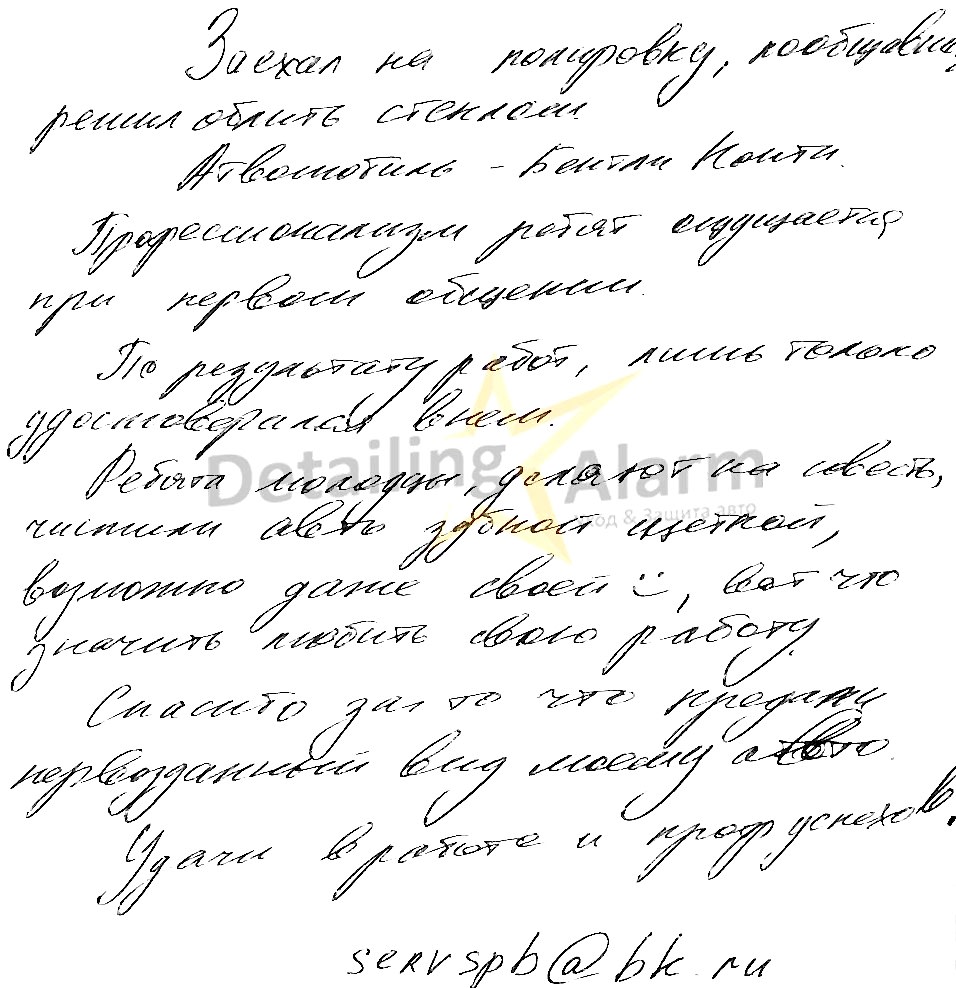 Заехал на полировку, пообщавши
решил облить стеклом.
Атвомобиль - Бентли Конти.
Профессионализм ребят ощущается
при первом общении.
По результату работ, лишь только
удостоверился в нем.
Detailing Alarm
Уход & Защита авто
Ребята молодцы, делают на совесть,
чистили авто зубной щеткой,
возможно даже своей :), вот что
значить любить свою работу.
Спасибо за то что предали
первозданный вид моему авто.
Удачи в работе и проф успехов.
servspb@bk.ru